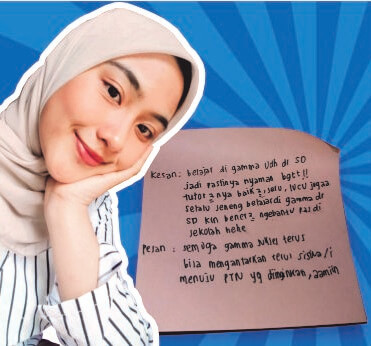 Kesan : belajar di gamma udh dr SD
jadi pastinya nyaman bgtt!!
tutor2nya baik2, seru, lucu jugaa
selalu seneng belajar di gamma dr
SD krn bener2 ngebantu pas di
sekolah hehe
Pesan : semoga gamma sukses terus
bisa mengantarkan terus siswa/i
menuju PTN yg diinginkan, aamiin